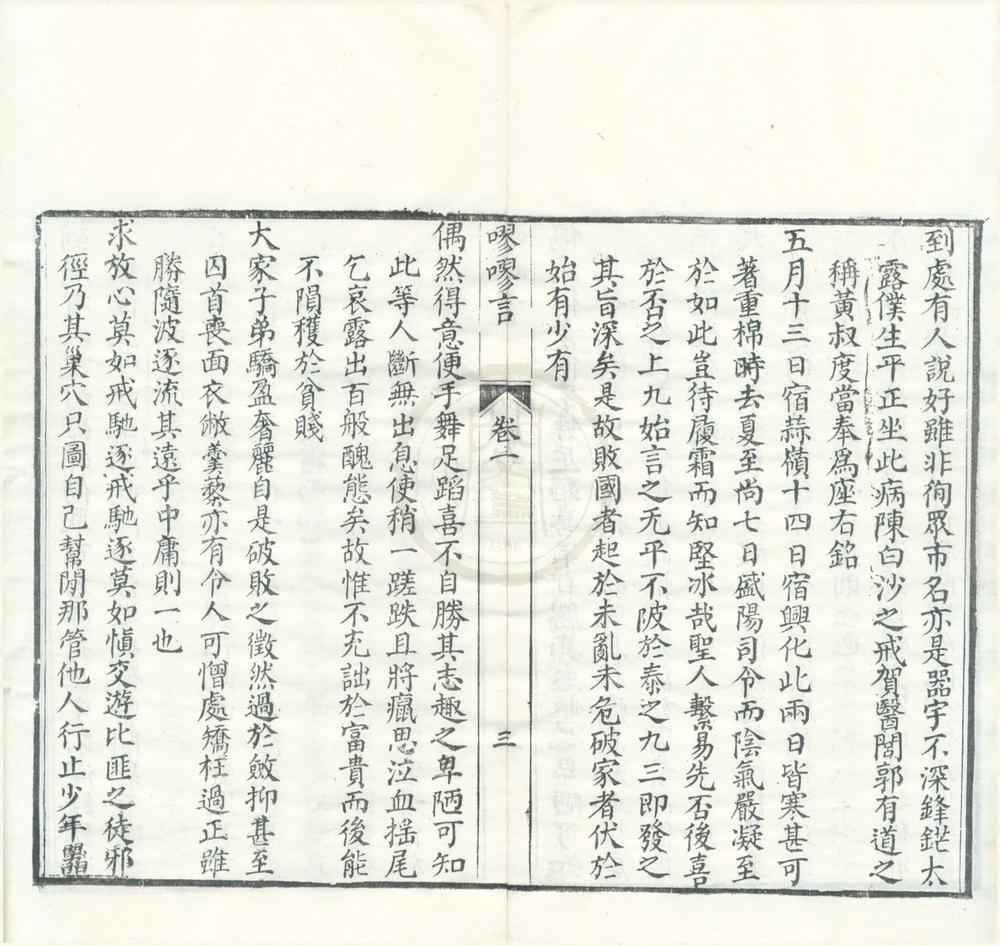 到處有人說好雖非徇眾市名亦是器宇不深鋒鋩太
露僕生平正坐此病陳白沙之戒賀醫閭郭有道之
稱黃叔度當奉爲座右銘
五月十三日宿蒜嶺十四日宿興化此兩日皆寒甚可
著重棉時去夏至尚七日盛陽司令而陰氣嚴凝至
於如此豈待履霜而知堅冰哉聖人繫易先否後喜
於否之上九始言之无平不陂於泰之九三即發之
其旨深矣是故敗國者起於未亂未危破家者伏於
始有少有
嘐嘐言
卷一
三
偶然得意便手舞足蹈喜不自勝其志趣之卑陋可知
此等人斷無出息使稍一蹉跌且將癙思泣血搖尾
乞哀露出百般醜態矣故惟不充詘於富貴而後能
不隕穫於貧賤
大家子弟驕盈奢麗自是破敗之徵然過於斂抑甚至
囚首喪面衣敝羹藜亦有令人可憎處矯枉過正雖
勝隨波逐流其遠乎中庸則一也
求放心莫如戒馳逐戒馳逐莫如愼交遊比匪之徒邪
徑乃其巢穴只圖自己幫閒那管他人行止少年嚚